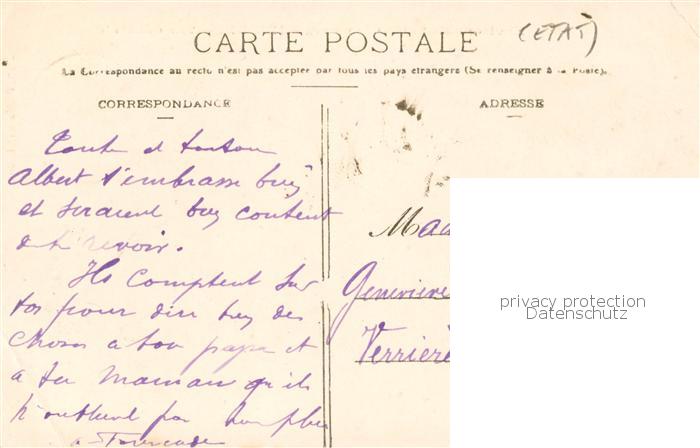 (ETAT)
CARTE POSTALE
La Correspondance au recto n'est pas acceptée par tous les pays étrangers (Se renseigner à la Poste).
CORRESPONDANCE
ADRESSE
Tante et tonton
Albert t'embrasse bien
et seraient bien content
de te revoir.
Ils comptent sur
toi pour dire bien des
choses a ton papa et
a ta maman qu'ils
n'oublient pas non plus
a
Mad
Genevieve
Verriere
privacy protection
Datenschutz